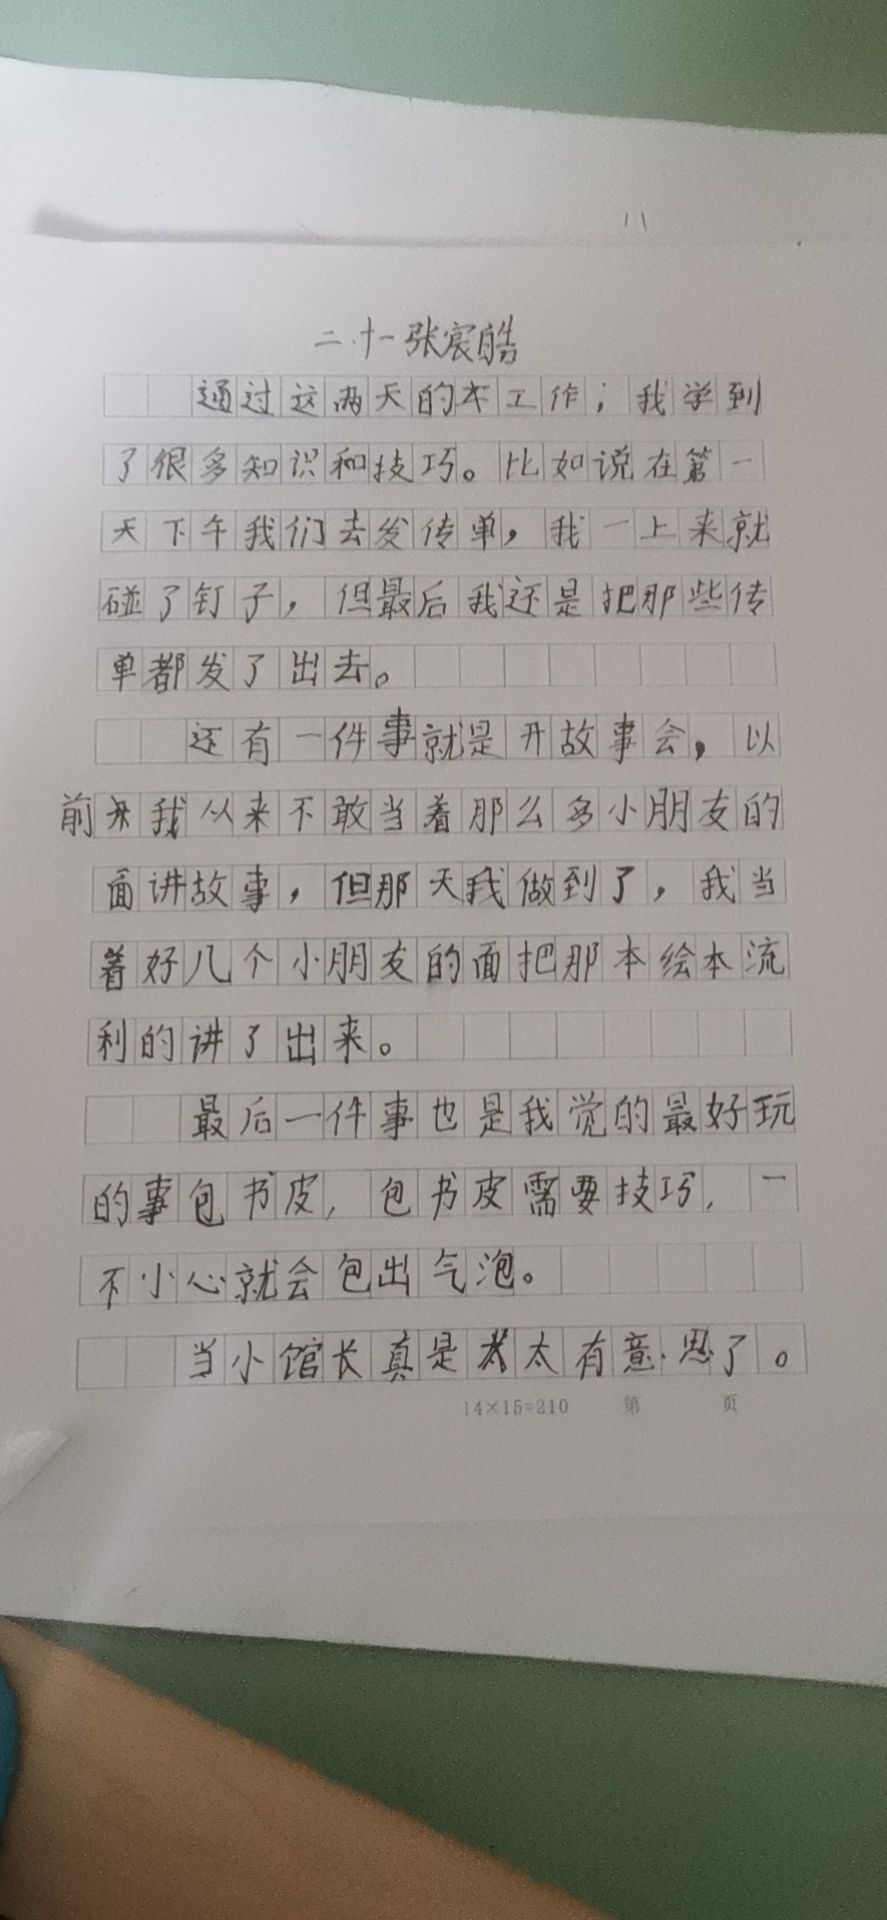 二.十一张宸皓
通过这两天的本工作；我学到
了很多知识和技巧。比如说在第一
天下午我们去发传单，我一上来就
碰了钉子，但最后我还是把那些传
单都发了出去。
还有一件事就是开故事会，以
前我从来不敢当着那么多小朋友的
面讲故事，但那天我做到了，我当
着好几个小朋友的面把那本绘本流
利的讲了出来。
最后一件事也是我觉的最好玩
的事包书皮，包书皮需要技巧，一
不小心就会包出气泡。
当小馆长真是太有意思了。
14×15=210 第 页